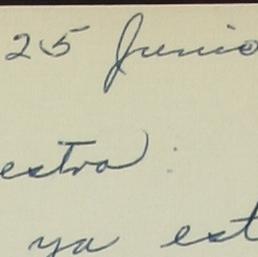 25 Junio
estra :
ya est